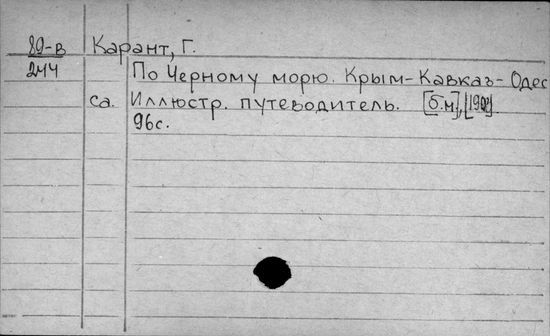 89-в Карант, Г.
244 По Черному морю. Крым-Кавказ-Одес
са. Иллюстр. путеводитель. [б.м],
96с.